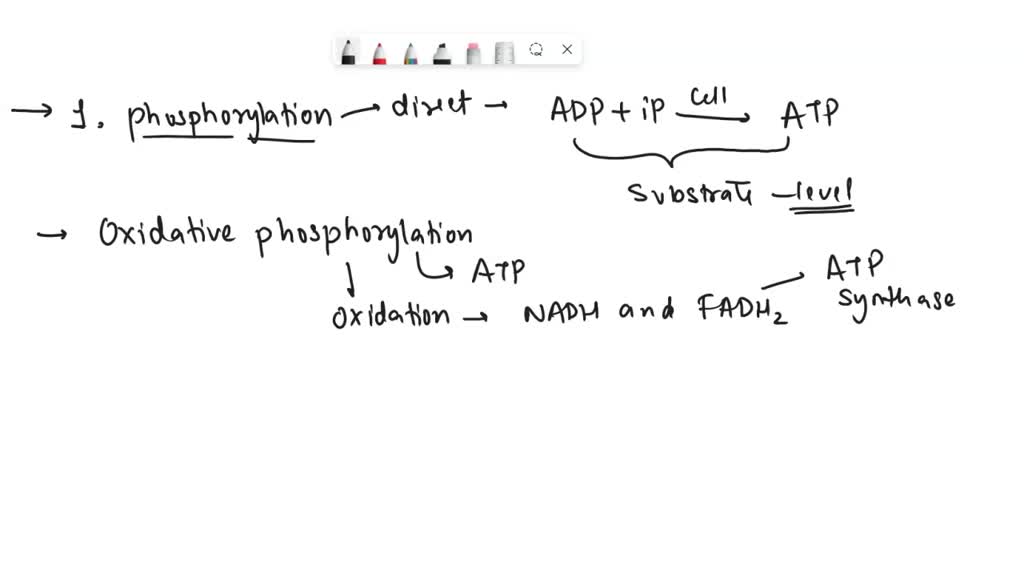 → 1. phosphorylation → direct → ADP + iP Cell → ATP
Substrate - level
→ Oxidative phosphorylation
ATP
Oxidation → NADH and FADH₂ → ATP synthase